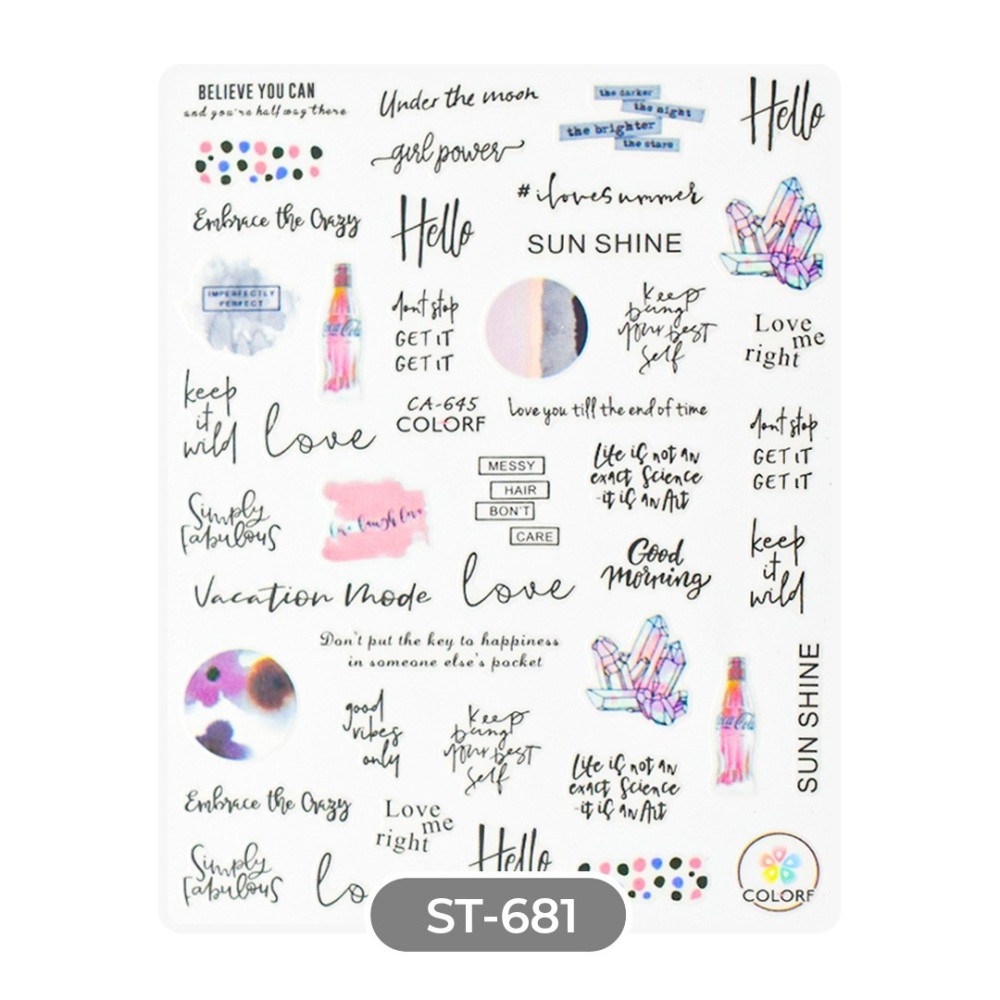 BELIEVE YOU CAN
and you're half way there
Under the moon
the darker
the night
the brighter
the stars
Hello
girl power
# ilovesummer
Embrace the Crazy
Hello
SUN SHINE
IMPERFECTLY
PERFECT
Coca-Cola
dont stop
GET IT
GET IT
Keep
being
your best
self
Love
me
right
keep
it
wild
love
CA-645
COLORF
love you till the end of time
dont stop
GET IT
GET IT
MESSY
HAIR
BON'T
CARE
Life is not an
exact Science
-it is an Art
Simply
fabulous
live laugh love
Good
Morning
keep
it
wild
Vacation Mode
love
Don't put the key to happiness
in someone else's pocket
SUN SHINE
good
vibes
only
Keep
being
your best
self
Coca-Cola
Life is not an
exact Science
-it is an Art
Embrace the Crazy
Love
me
right
Hello
Simply
fabulous
lo
COLORF
ST-681